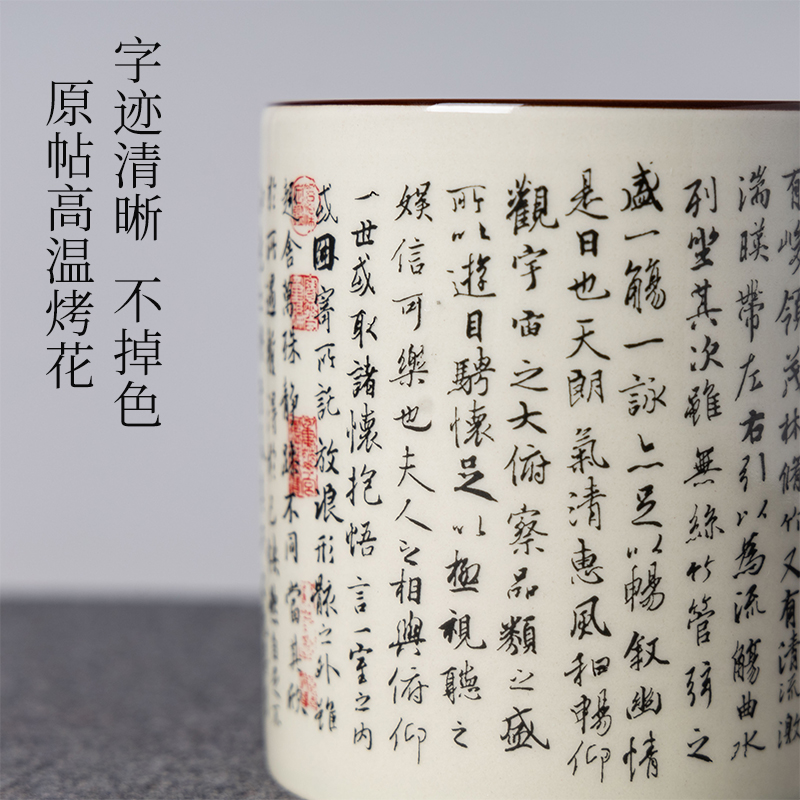 字迹清晰 不掉色
原帖高温烤花
有峻領茂林脩竹又有清流激
湍暎帶左右引以為流觴曲水
列坐其次雖無絲竹管弦之
盛一觴一詠亦足以暢叙幽情
是日也天朗氣清惠風和暢仰
觀宇宙之大俯察品類之盛
所以遊目騁懷足以極視聽之
娛信可樂也夫人之相與俯仰
一世或取諸懷抱悟言一室之内
或因寄所託放浪形骸之外雖
趣舍萬殊靜躁不同當其欣
於所遇暫得於己快然自足不